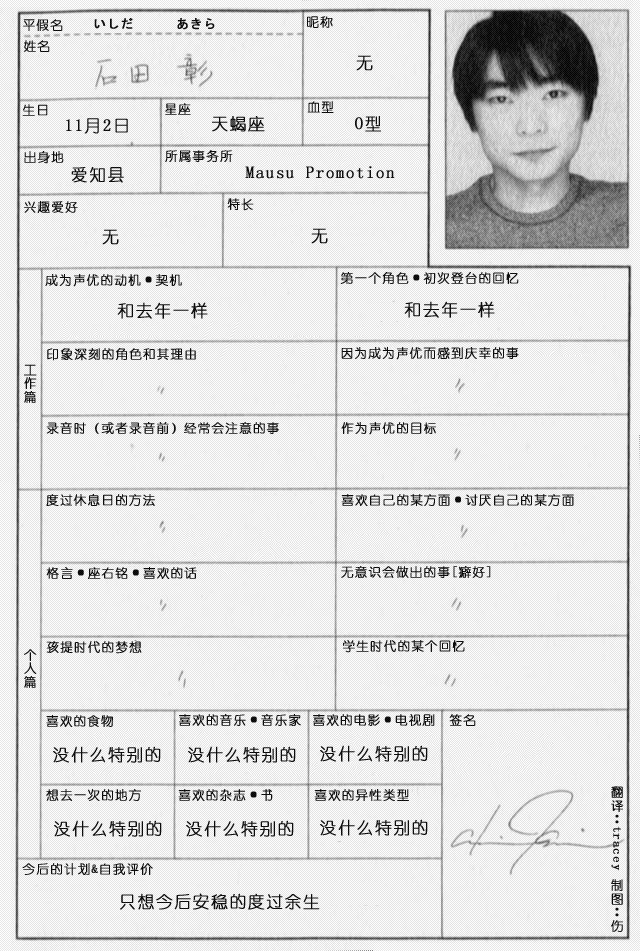 平假名 いしだ あきら
昵称
姓名
石田 彰
无
生日
11月2日
星座
天蝎座
血型
O型
出身地
爱知县
所属事务所
Mausu Promotion
兴趣爱好
无
特长
无
工作篇
成为声优的动机●契机
和去年一样
第一个角色●初次登台的回忆
和去年一样
印象深刻的角色和其理由
〃
因为成为声优而感到庆幸的事
〃
录音时（或者录音前）经常会注意的事
〃
作为声优的目标
〃
个人篇
度过休息日的方法
〃
喜欢自己的某方面●讨厌自己的某方面
〃
格言●座右铭●喜欢的话
〃
无意识会做出的事[癖好]
〃
孩提时代的梦想
〃
学生时代的某个回忆
〃
喜欢的食物
没什么特别的
喜欢的音乐●音乐家
没什么特别的
喜欢的电影●电视剧
没什么特别的
签名
想去一次的地方
没什么特别的
喜欢的杂志●书
没什么特别的
喜欢的异性类型
没什么特别的
今后的计划&自我评价
只想今后安稳的度过余生
翻译••tracey 制图••伤